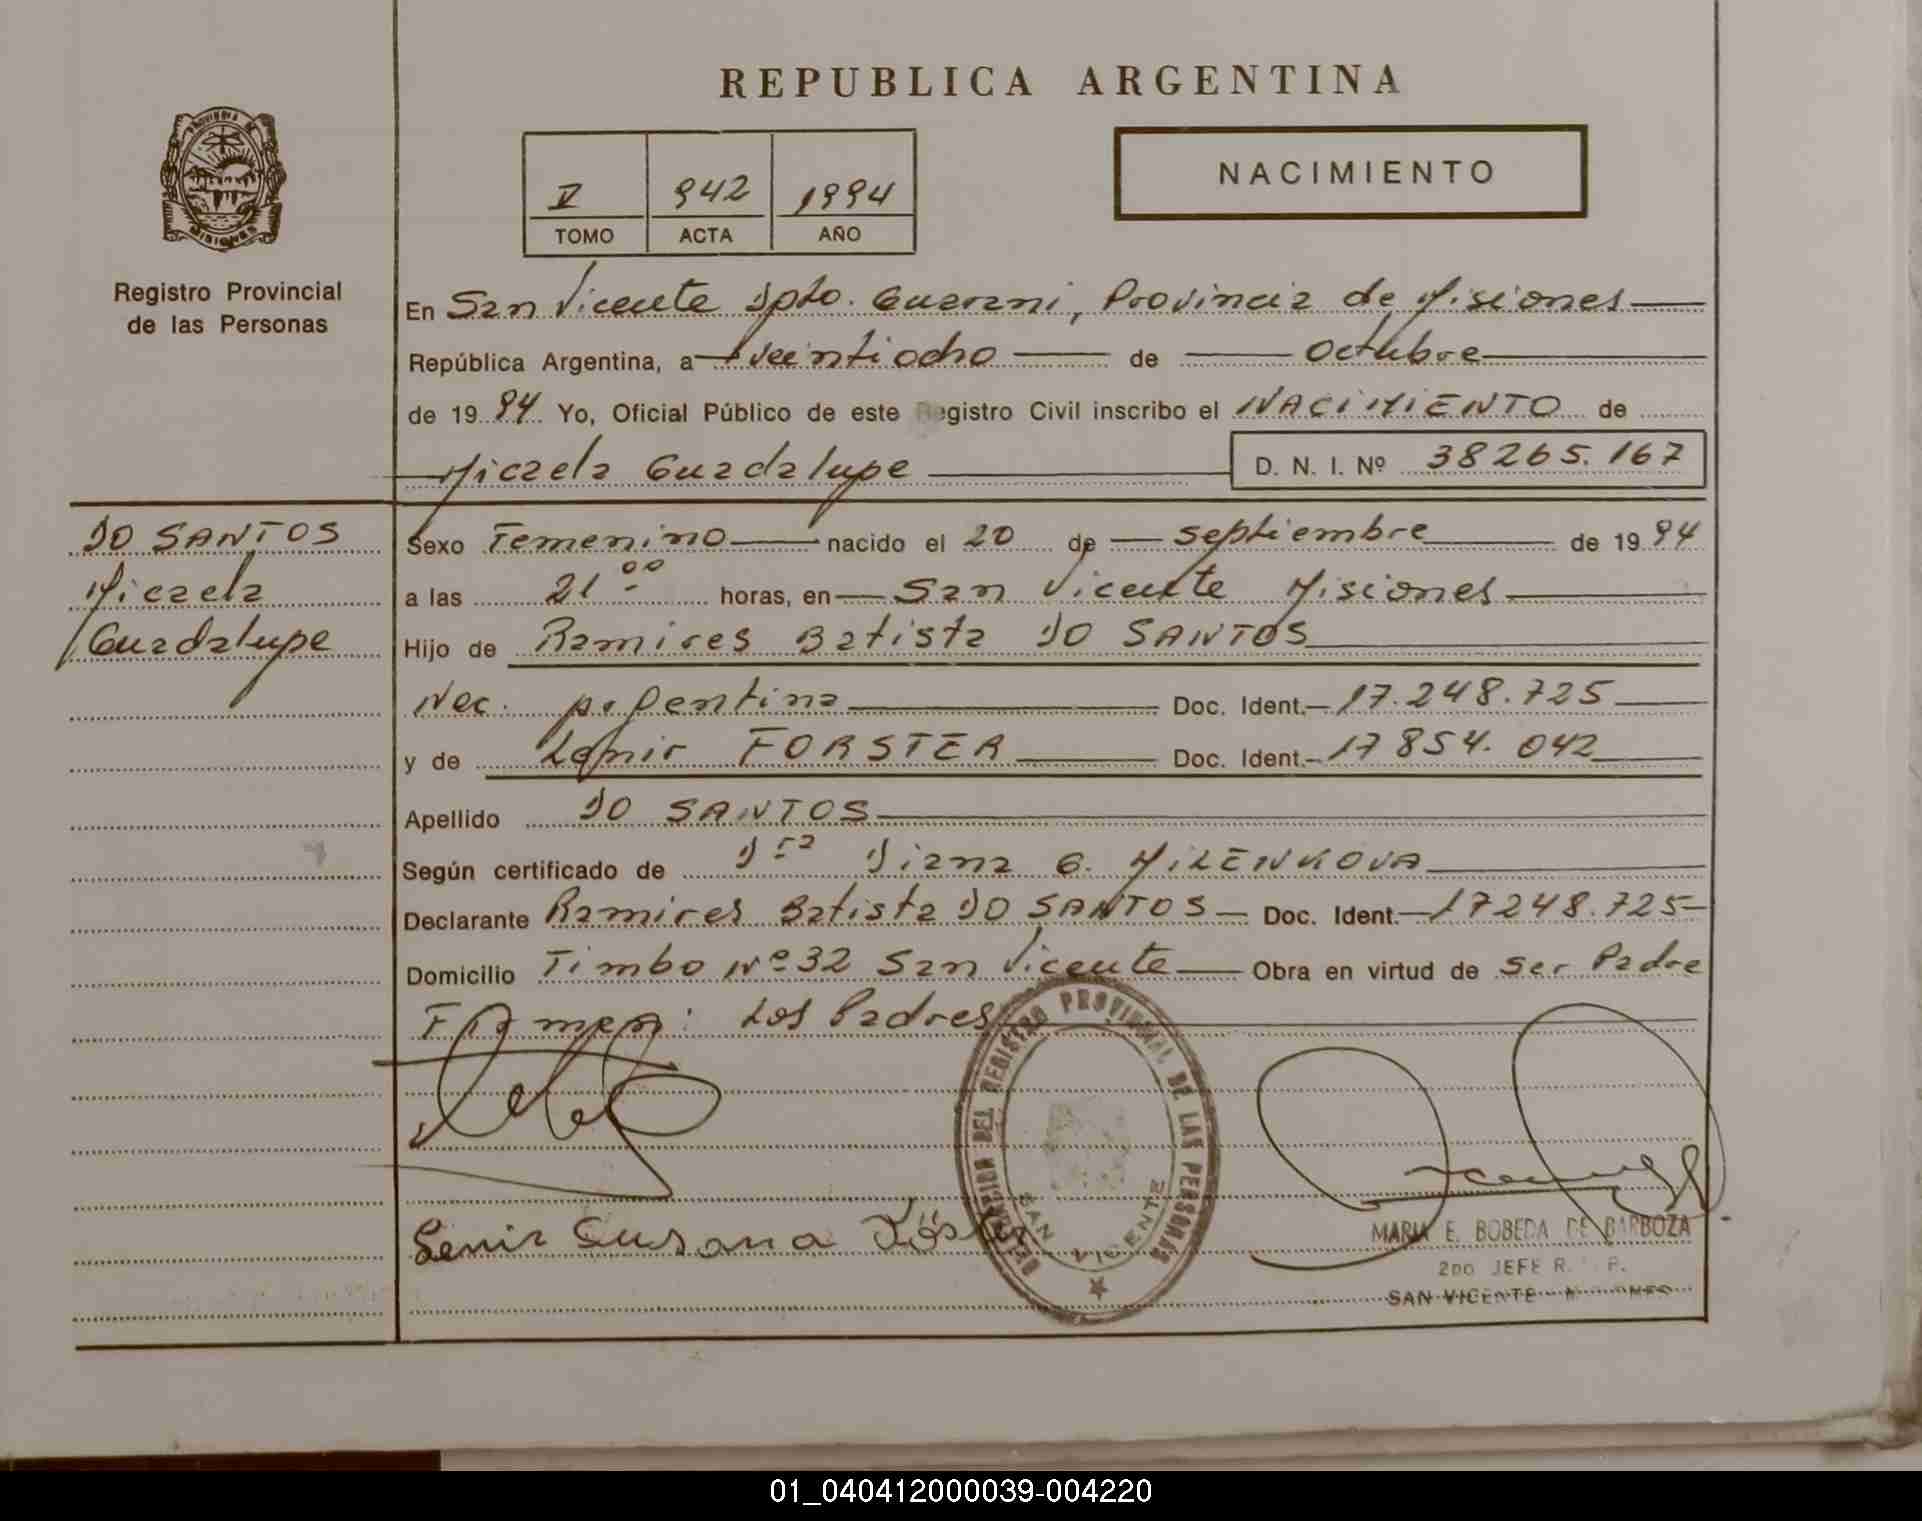 REPUBLICA ARGENTINA
V 942 1994
TOMO ACTA AÑO
NACIMIENTO
PROVINCIA DE MISIONES
Registro Provincial
de las Personas
En San Vicente Dpto. Guarani, Provincia de Misiones
República Argentina, a veintiocho de Octubre
de 1994 Yo, Oficial Público de este Registro Civil inscribo el NACIMIENTO de
Micaela Guadalupe D. N. I. Nº 38265.167
DO SANTOS
Micaela
Guadalupe
Sexo Femenino nacido el 20 de septiembre de 1994
a las 21 00 horas, en San Vicente Misiones
Hijo de Ramires Batista DO SANTOS
Nac. Argentina Doc. Ident. 17.248.725
y de Lenir FORSTER Doc. Ident. 17854.042
Apellido DO SANTOS
Según certificado de Dra Diana G. MILENKOVA
Declarante Ramires Batista DO SANTOS Doc. Ident. 17248.725
Domicilio Timbo Nº 32 San Vicente Obra en virtud de ser Padre
Firman: Los Padres
DELEGACION DEL REGISTRO PROVINCIAL DE LAS PERSONAS
SAN VICENTE
Lenir Susana
MARIA E. BOBEDA DE BARBOZA
2DO JEFE R. P.
SAN VICENTE - MISIONES
01_040412000039-004220